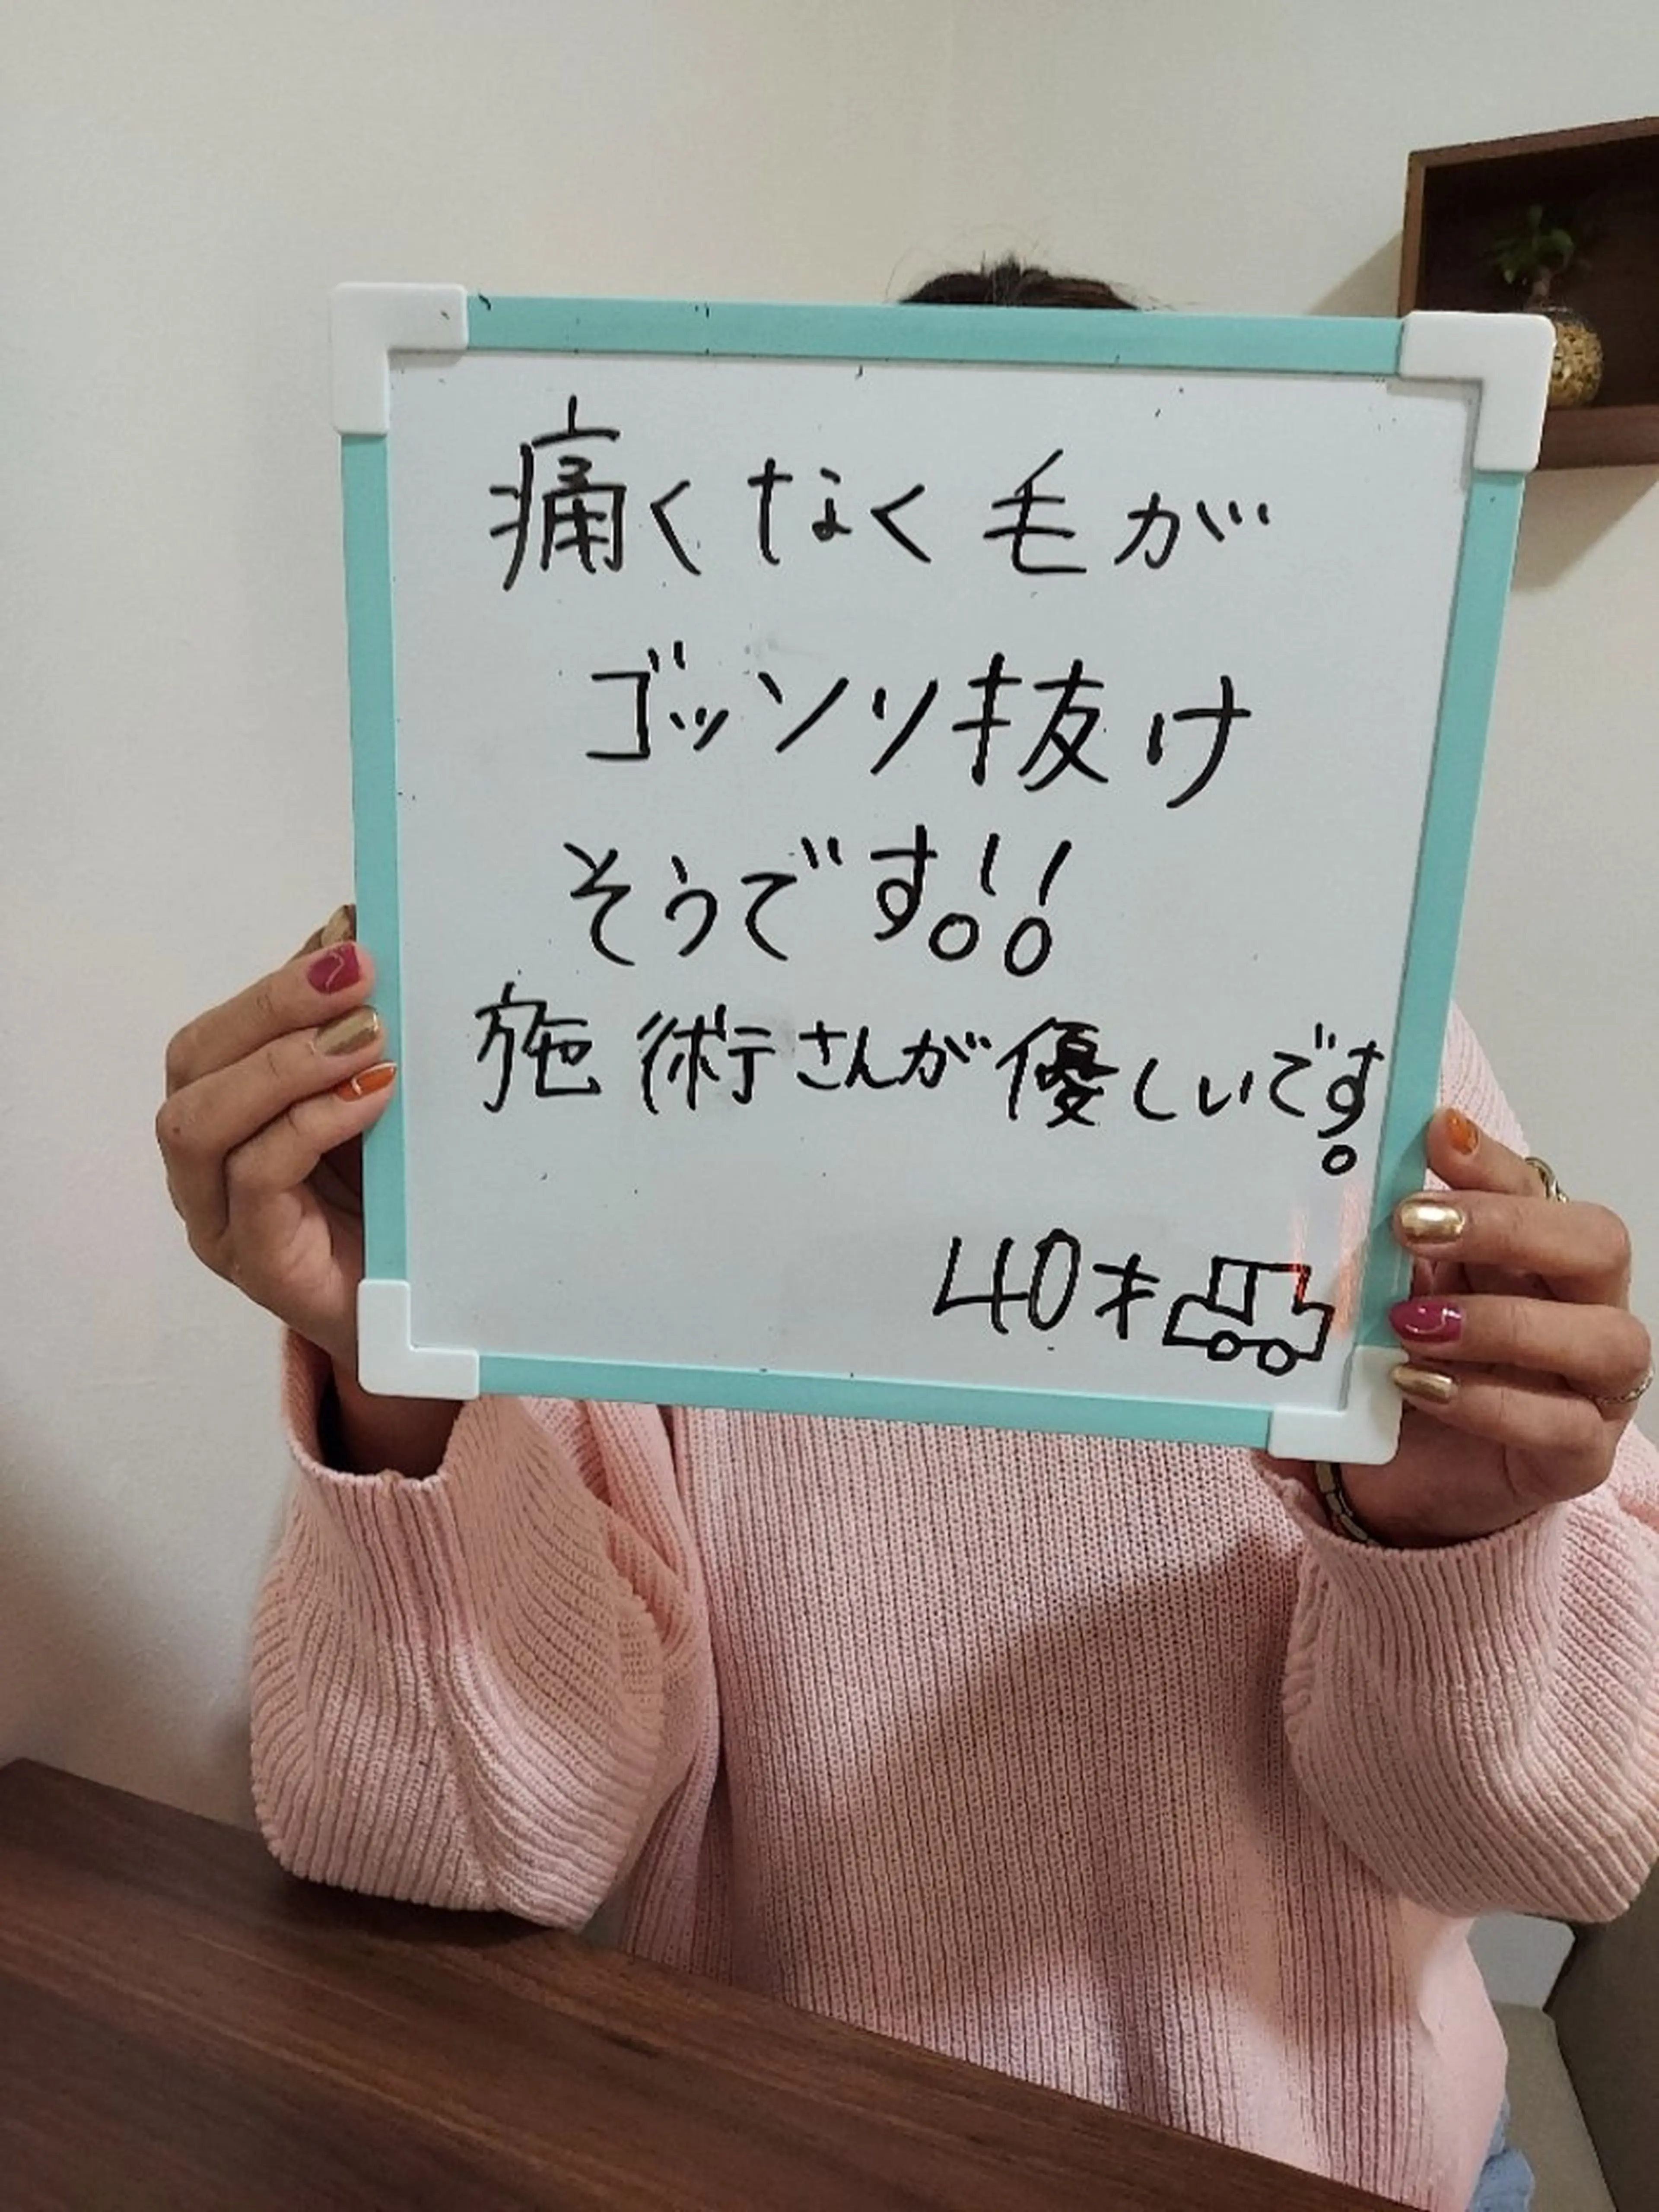 痛くなく毛が
ゴッソリ抜け
そうです!!
施術さんが優しいです。
40才